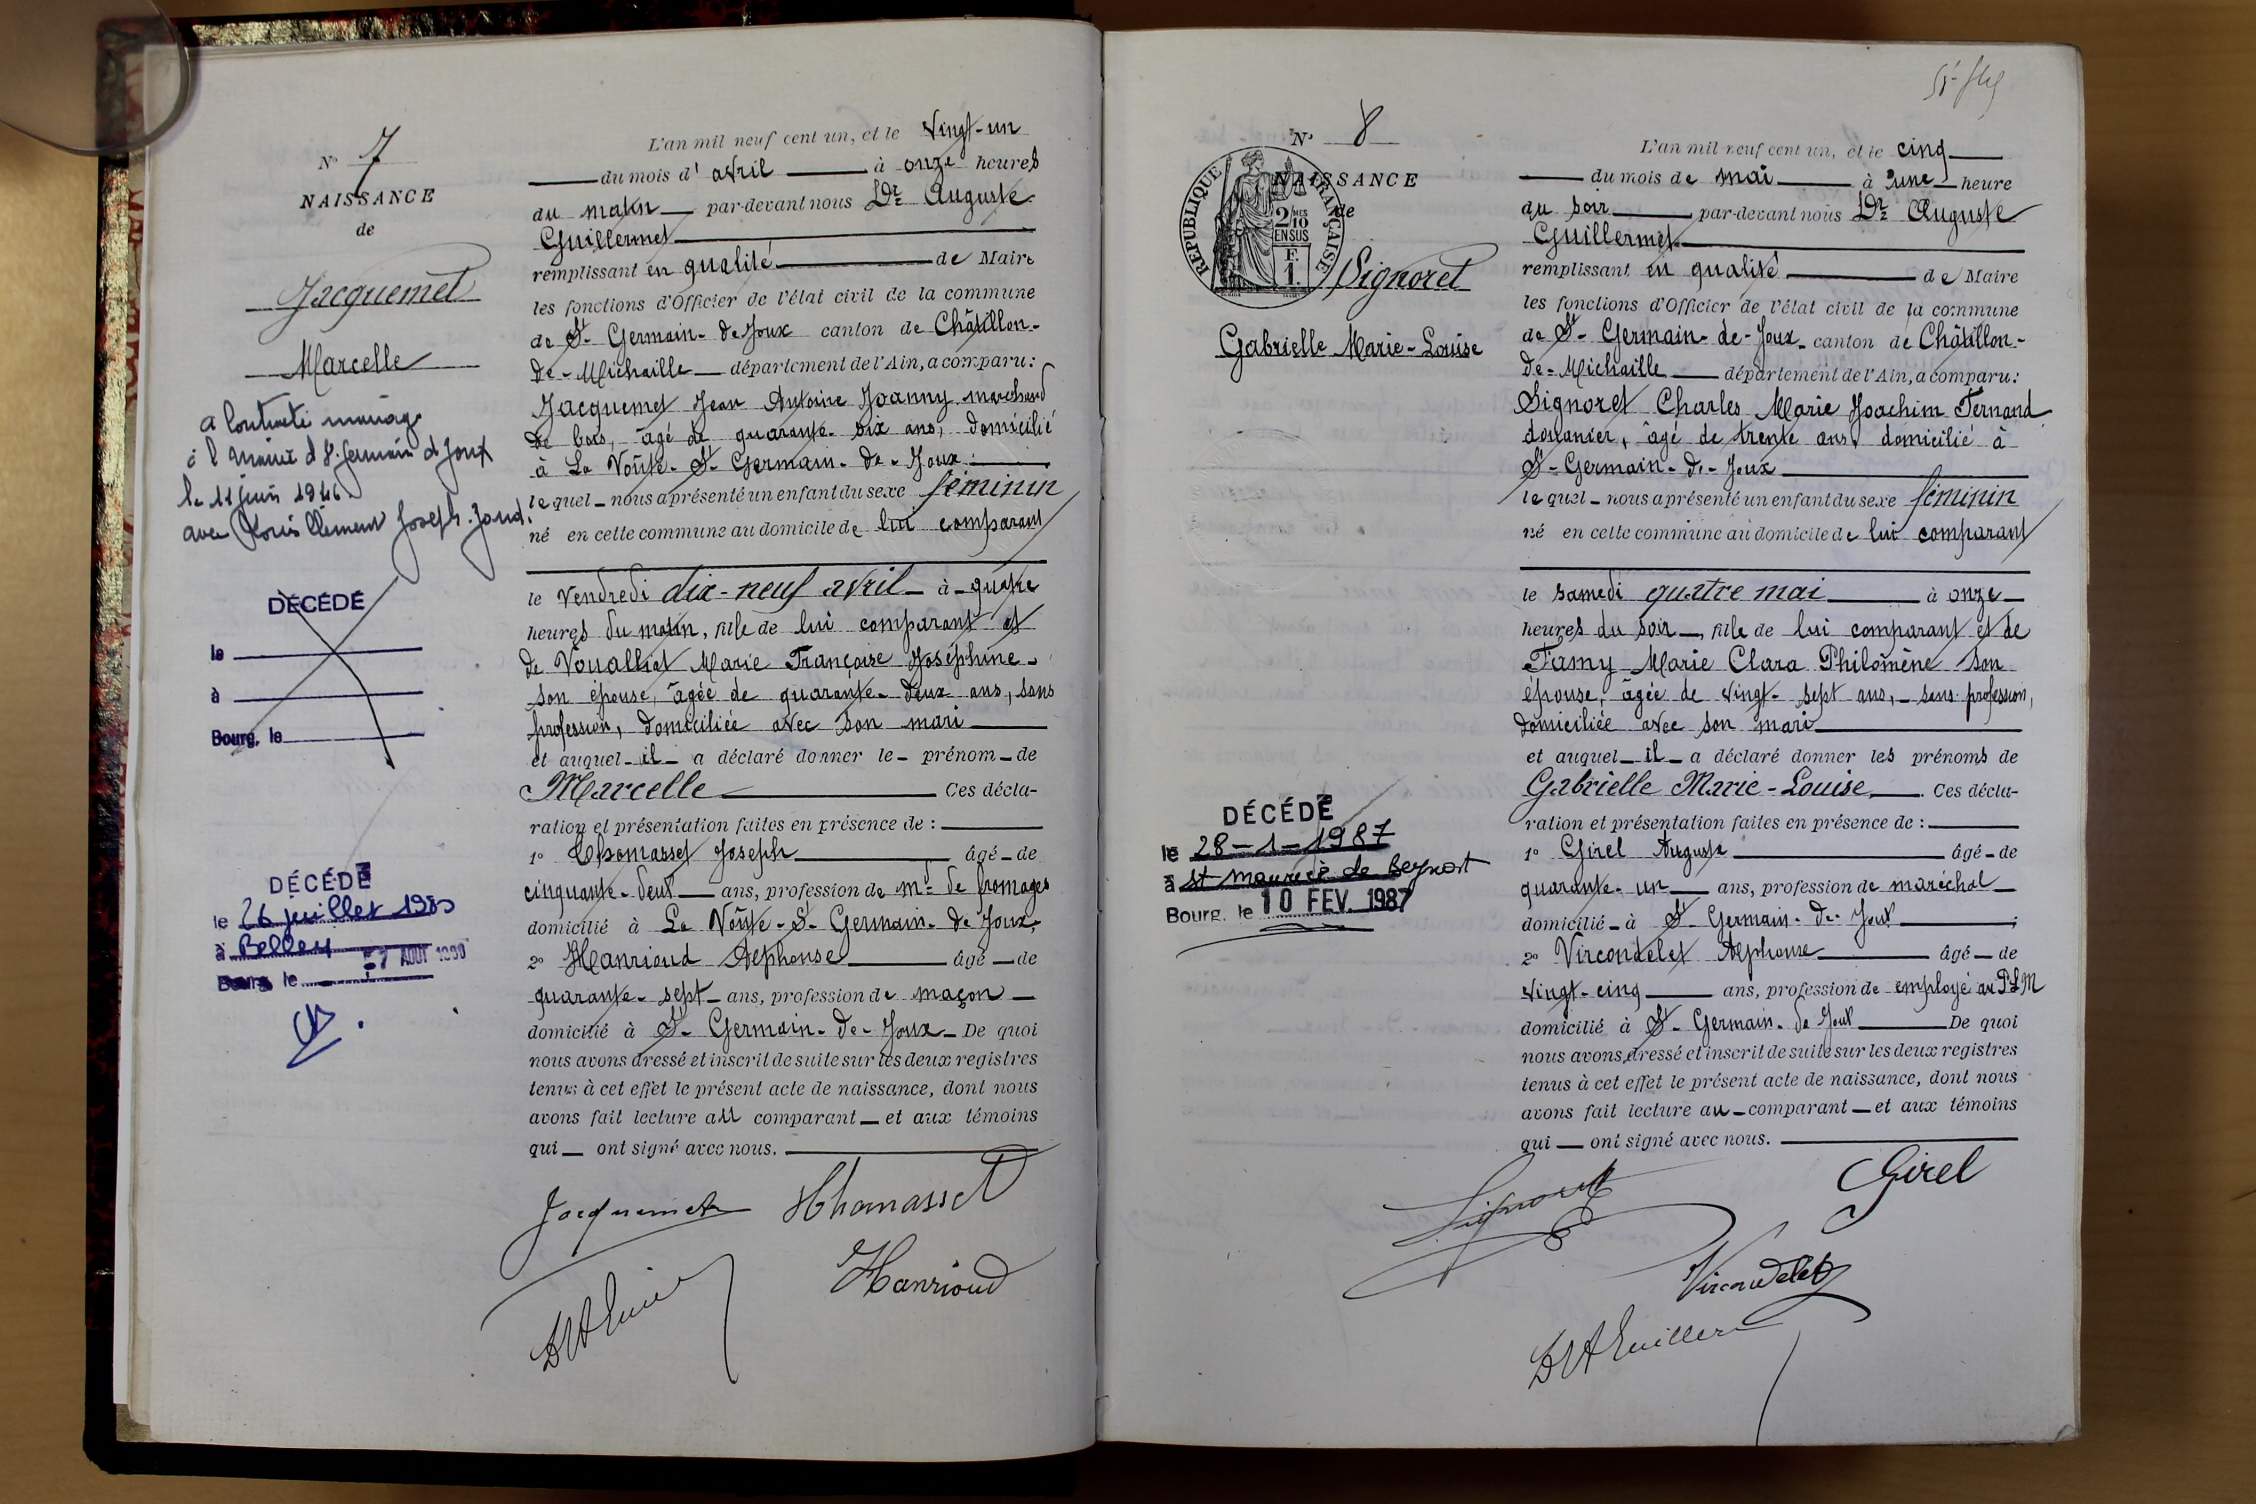 N° 7
NAISSANCE
de
Jacquemet
Marcelle
a contracté mariage
à la mairie d St. Germain d Joux
le 11 juin 1946
avec Louis Clément Joseph
DÉCÉDÉ
le
à
Bourg, le
DÉCÉDÉ
le 26 juillet
à Belley
Bourg le -7 AOUT
L'an mil neuf cent un, et le vingt-un
du mois d' avril à onze heures
du matin par-devant nous Dr Auguste
Guillermet
remplissant en qualité de Maire
les fonctions d'Officier de l'état civil de la commune
de St- Germain-de Joux canton de Châtillon-
de-Michaille département de l'Ain, a comparu:
Jacquemet Jean Antoine Joanny marchand
de bois, âgé de quarante-six ans, domicilié
à La Voûte-St-Germain-de-Joux:
le quel nous a présenté un enfant du sexe féminin
né en cette commune au domicile de lui comparant
le Vendredi dix-neuf avril à quatre
heures du matin, fille de lui comparant et
de Vouallat Marie Françoise Joséphine
son épouse, âgée de quarante-deux ans, sans
profession, domiciliée avec son mari
et auquel il a déclaré donner le prénom de
Marcelle Ces décla-
ration et présentation faites en présence de :
1° Thomasset Joseph âgé de
cinquante-deux ans, profession de md de fromages
domicilié à La Voûte-St-Germain-de Joux,
2° Hanrioud Alphonse âgé de
quarante-sept ans, profession de maçon
domicilié à St-Germain-de-Joux De quoi
nous avons dressé et inscrit de suite sur les deux registres
tenus à cet effet le présent acte de naissance, dont nous
avons fait lecture au comparant et aux témoins
qui ont signé avec nous.
Jacquemet Thomasset
Hanrioud
N° 8
NAISSANCE
de
RÉPUBLIQUE FRANÇAISE
2/10 MES
EN SUS
F.
1.
Signoret
Gabrielle Marie-Louise
DÉCÉDÉ
le 28-1-1987
à St Maurice de Beynost
Bourg, le 10 FEV. 1987
L'an mil neuf cent un, et le cinq
du mois de mai à une heure
du soir par-devant nous Dr Auguste
Guillermet
remplissant en qualité de Maire
les fonctions d'Officier de l'état civil de la commune
de St-Germain-de-Joux canton de Châtillon-
de-Michaille département de l'Ain, a comparu:
Signoret Charles Marie Joachim Fernand
douanier, âgé de trente ans, domicilié à
St-Germain-de-Joux
le quel nous a présenté un enfant du sexe féminin
né en cette commune au domicile de lui comparant
le samedi quatre mai à onze
heures du soir, fille de lui comparant et de
Famy Marie Clara Philomène son
épouse, âgée de vingt-sept ans, sans profession,
domiciliée avec son mari
et auquel il a déclaré donner les prénoms de
Gabrielle Marie-Louise. Ces décla-
ration et présentation faites en présence de :
1° Girel Auguste âgé de
quarante-un ans, profession de maréchal
domicilié à St Germain-de-Joux;
2° Vircondelet Alphonse âgé de
vingt-cinq ans, profession de employé au PLM
domicilié à St-Germain-de Joux De quoi
nous avons dressé et inscrit de suite sur les deux registres
tenus à cet effet le présent acte de naissance, dont nous
avons fait lecture au comparant et aux témoins
qui ont signé avec nous.
Signoret Girel
Vircondelet
Dr A Guillermet